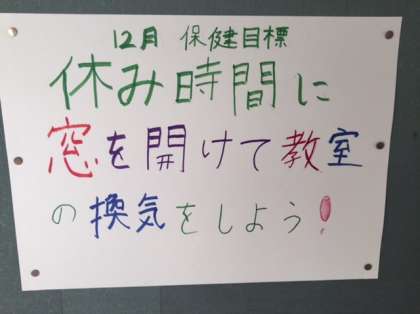 12月 保健目標
休み時間に
窓を開けて教室
の換気をしよう!